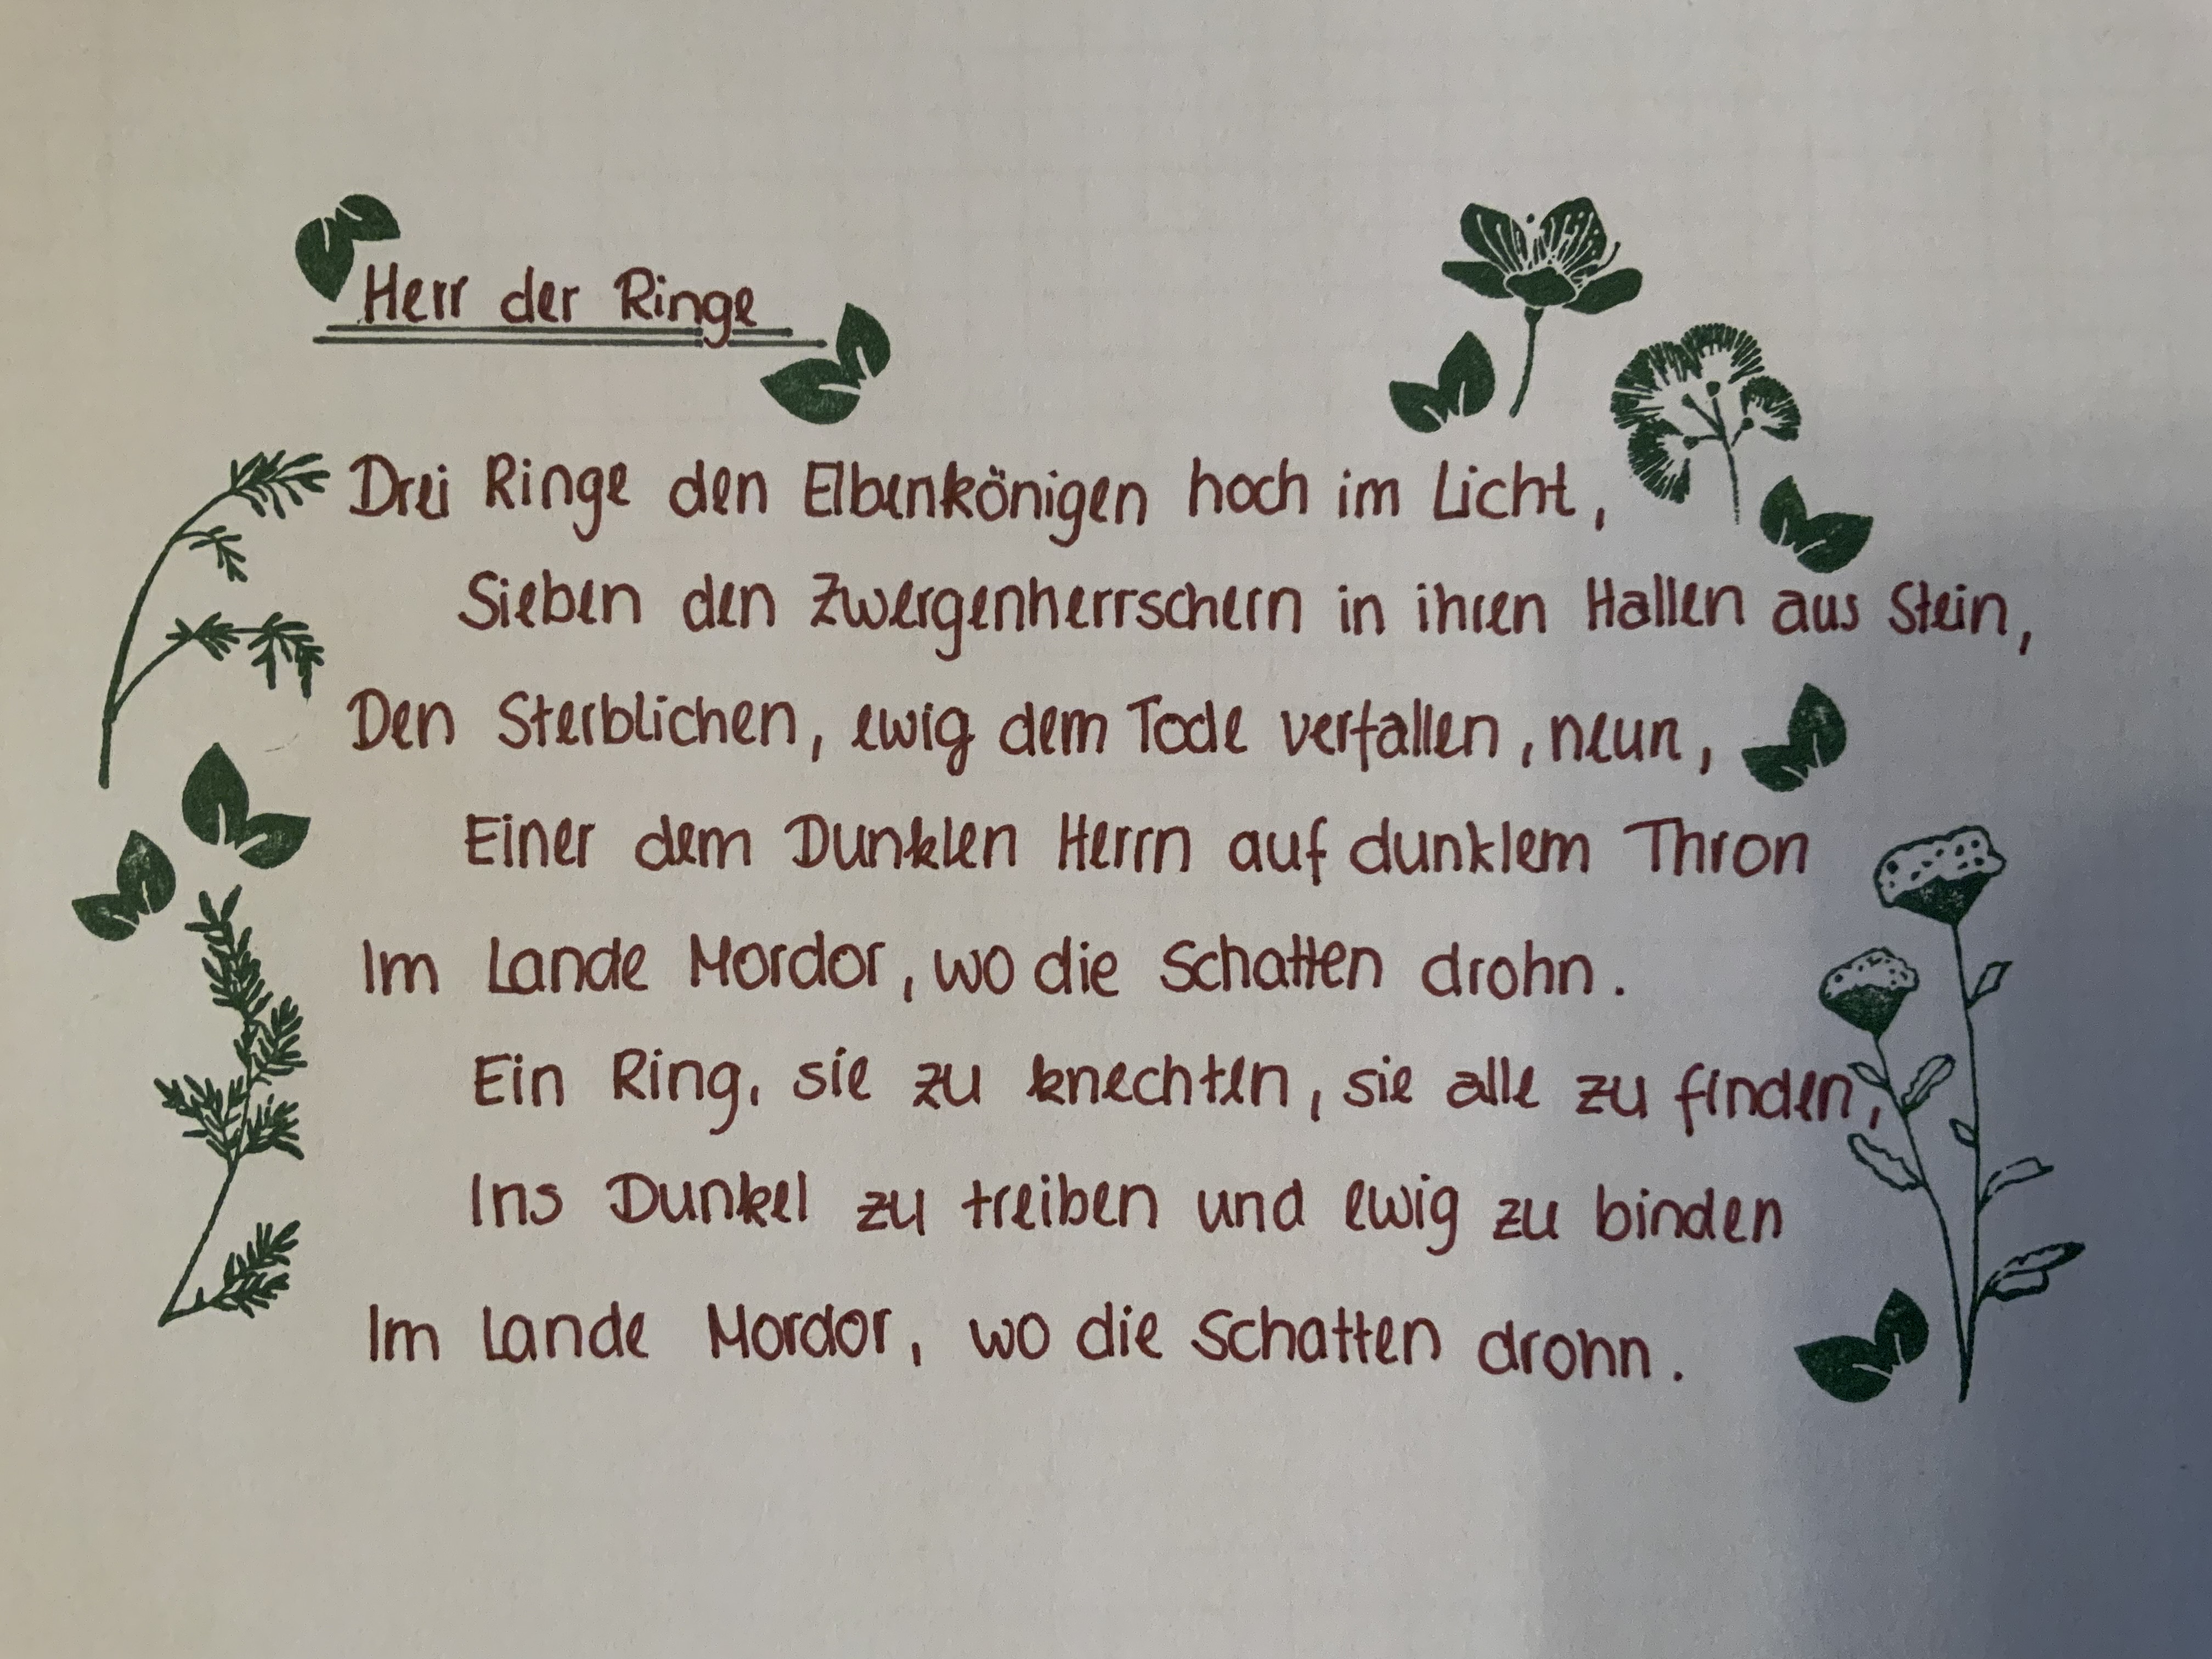 Herr der Ringe
Drei Ringe den Elbenkönigen hoch im Licht,
Sieben den Zwergenherrschern in ihren Hallen aus Stein,
Den Sterblichen, ewig dem Tode verfallen, neun,
Einer dem Dunklen Herrn auf dunklem Thron
Im Lande Mordor, wo die Schatten drohn.
Ein Ring, sie zu knechten, sie alle zu finden,
Ins Dunkel zu treiben und ewig zu binden
Im Lande Mordor, wo die Schatten drohn.